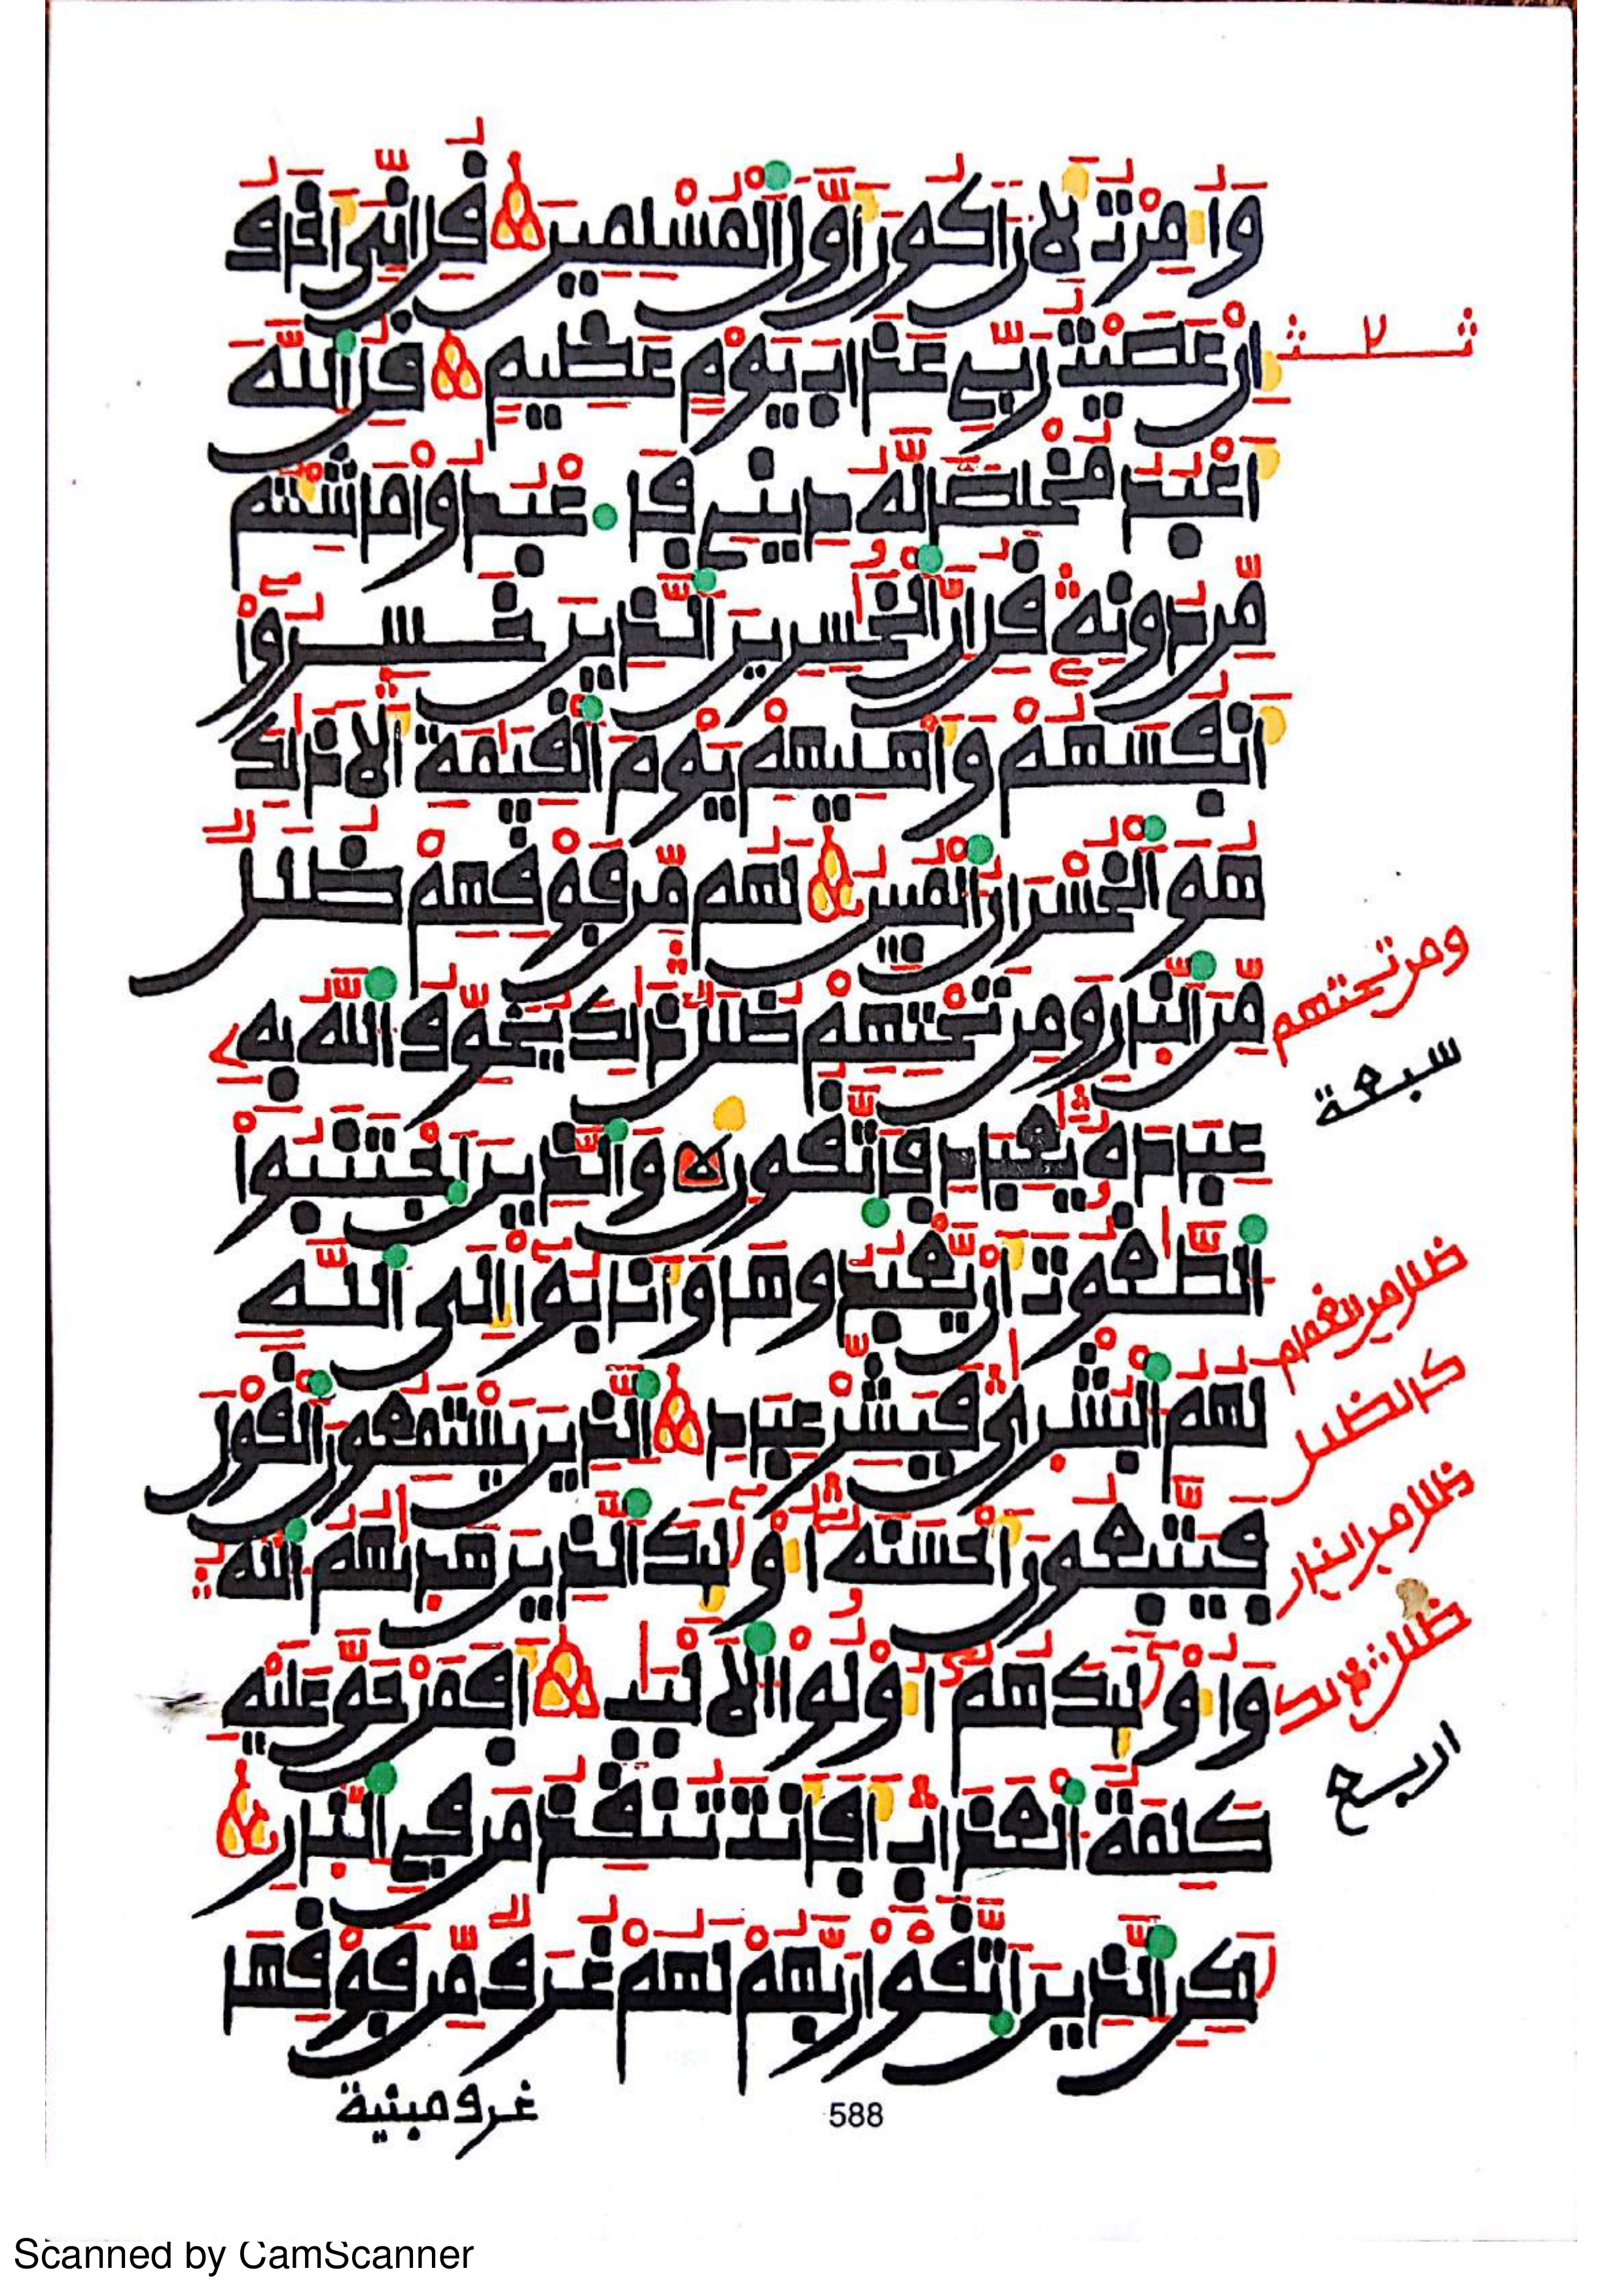 وَأُمِرْتُ لِأَنْ أَكُونَ أَوَّلَ ٱلْمُسْلِمِينَ قُلِ انِّيَ أَخَافُ
إِنْ عَصَيْتُ رَبِّي عَذَابَ يَوْمٍ عَظِيمٍ قُلِ ٱللَّهَ
أَعْبُدُ مُخْلِصًا لَّهُ دِينِي فَاعْبُدُوا مَا شِئْتُم
مِّن دُونِهِ قُلِ انَّ ٱلْخَٰسِرِينَ ٱلَّذِينَ خَسِرُوا
أَنفُسَهُمْ وَأَهْلِيهِمْ يَوْمَ ٱلْقِيَٰمَةِ أَلَا ذَٰلِكَ
هُوَ ٱلْخُسْرَانُ ٱلْمُبِينُ لَهُم مِّن فَوْقِهِمْ ظُلَلٌ
مِّنَ ٱلنَّارِ وَمِن تَحْتِهِمْ ظُلَلٌ ذَٰلِكَ يُخَوِّفُ ٱللَّهُ بِهِ
عِبَادَهُ يَٰعِبَادِ فَاتَّقُونِ وَٱلَّذِينَ ٱجْتَنَبُوا
ٱلطَّٰغُوتَ أَنْ يَّعْبُدُوهَا وَأَنَابُوا إِلَى ٱللَّهِ
لَهُمُ ٱلْبُشْرَىٰ فَبَشِّرْ عِبَادِ ٱلَّذِينَ يَسْتَمِعُونَ ٱلْقَوْلَ
فَيَتَّبِعُونَ أَحْسَنَهُ أُوْلَٰئِكَ ٱلَّذِينَ هَدَىٰهُمُ ٱللَّهُ
وَأُوْلَٰئِكَ هُمُ أُوْلُوا ٱلْأَلْبَٰبِ أَفَمَنْ حَقَّ عَلَيْهِ
كَلِمَةُ ٱلْعَذَابِ أَفَأَنتَ تُنقِذُ مَن فِي ٱلنَّارِ
لَٰكِنِ ٱلَّذِينَ ٱتَّقَوْا رَبَّهُمْ لَهُمْ غُرَفٌ مِّن فَوْقِهَا
غرف مبنية
588
ث ٢ ث
ومن تحتهم
سبعة
ظلل من الغمام
كالظلل
ظلل من النار
ظلل ذلك
اربع
Scanned by CamScanner